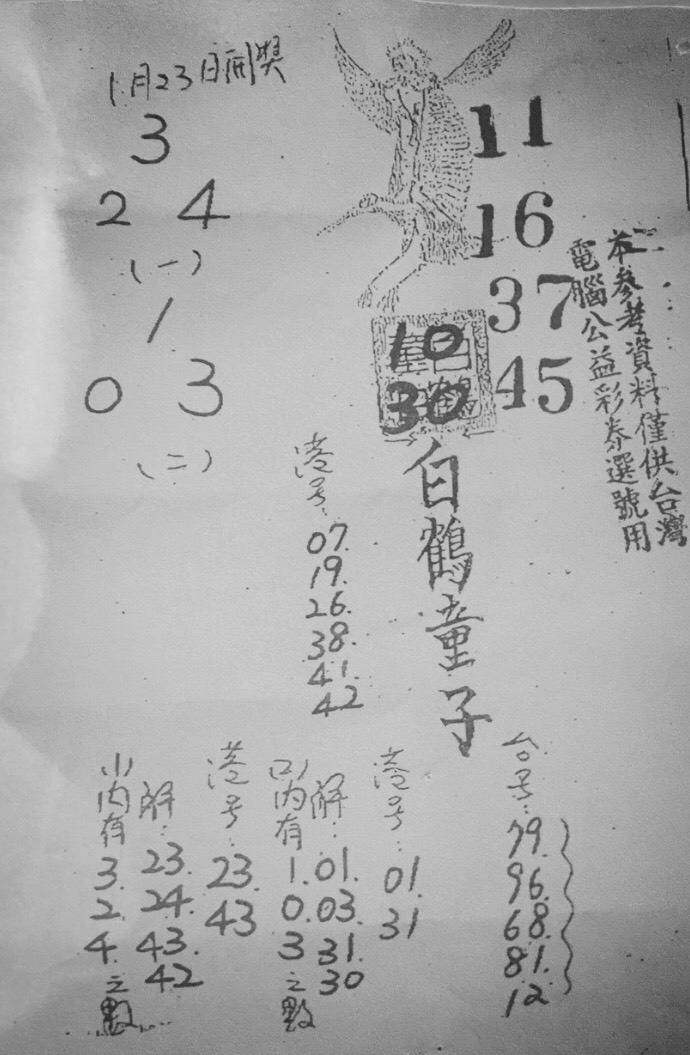 1月23日開獎
3
2 4
(一)
1
0 3
(二)
11
16
37
45
10
30
白鶴童子
本參考資料僅供台灣
電腦公益彩券選號用
港号:
07.
19.
26.
38.
41.
42
(1)内有
3.
2.
4.
之數
解:
23.
24.
43.
42
港号:
23.
43
(2)内有
1.
0.
3
之數
解:
01.
03.
31.
30
港号:
01.
31
台号:
79.
96.
68.
81.
12